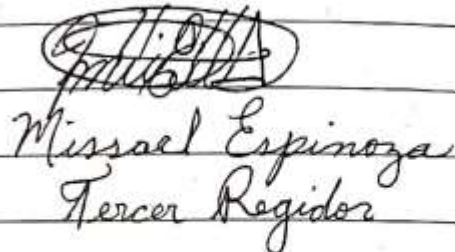 Missael Espinoza
Tercer Regidor